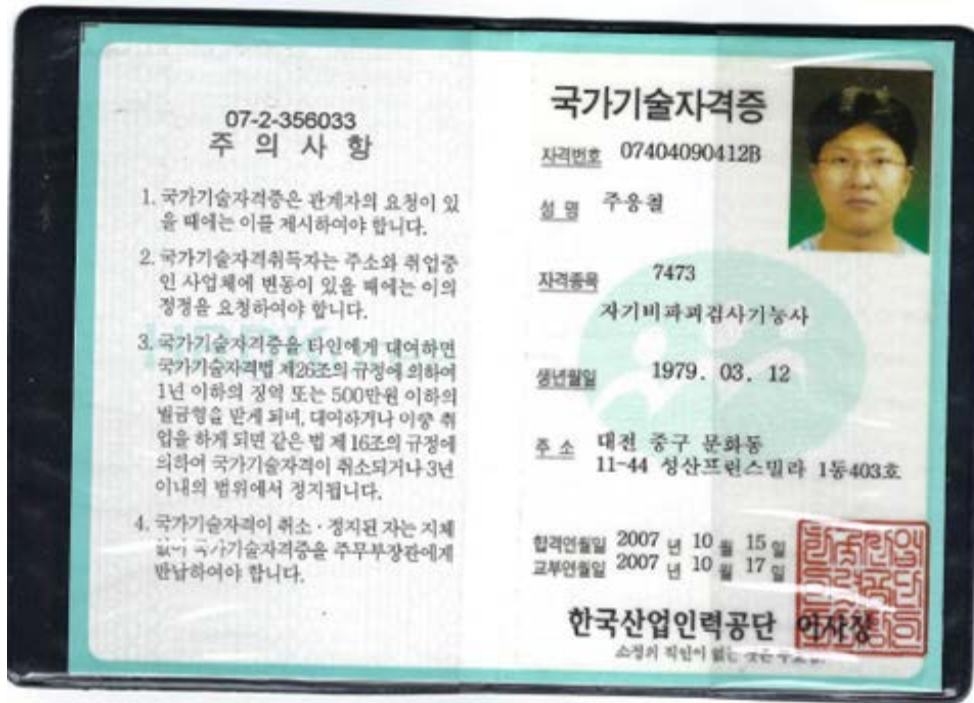 07-2-356033
주 의 사 항
1. 국가기술자격증은 관계자의 요청이 있
을 때에는 이를 제시하여야 합니다.
2. 국가기술자격취득자는 주소와 취업중
인 사업체에 변동이 있을 때에는 이의
정정을 요청하여야 합니다.
3. 국가기술자격증을 타인에게 대여하면
국가기술자격법 제26조의 규정에 의하여
1년 이하의 징역 또는 500만원 이하의
벌금형을 받게 되며, 대여하거나 이중 취
업을 하게 되면 같은 법 제16조의 규정에
의하여 국가기술자격이 취소되거나 3년
이내의 범위에서 정지됩니다.
4. 국가기술자격이 취소·정지된 자는 지체
없이 국가기술자격증을 주무부장관에게
반납하여야 합니다.
국가기술자격증
자격번호 07404090412B
성 명 주웅철
자격종목 7473
자기비파괴검사기능사
생년월일 1979. 03. 12
주 소 대전 중구 문화동
11-44 성산프린스빌라 1동403호
합격연월일 2007 년 10 월 15 일
교부연월일 2007 년 10 월 17 일
한국산업인력공단 이사장
소정의 직인이 없는 것은